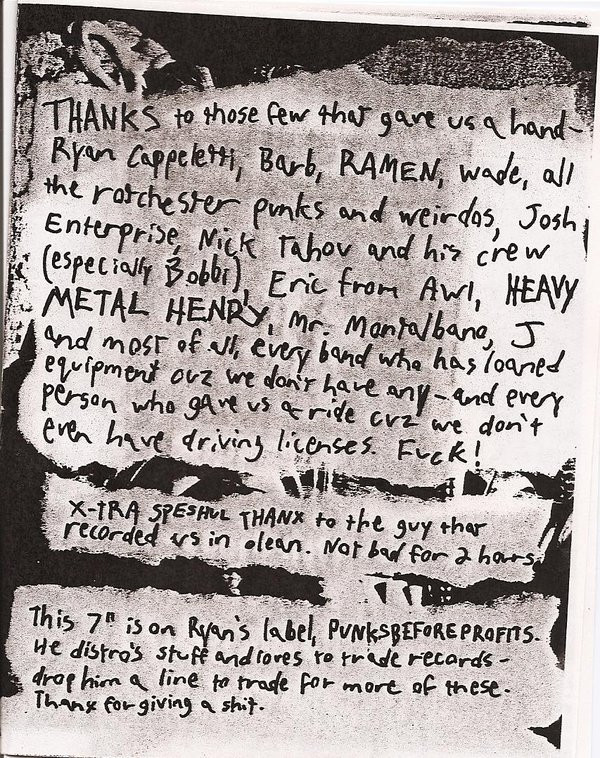 THANKS to those few that gave us a hand-
Ryan Cappeletti, Barb, RAMEN, wade, all
the rotchester punks and weirdos, Josh
Enterprise, Nick Tahou and his crew
(especially Bobbi), Eric from Awl, HEAVY
METAL HENRY, Mr. Montalbano, J
and most of all, every band who has loaned
equipment cuz we don't have any - and every
person who gave us a ride cuz we don't
even have driving licenses. Fuck!
X-TRA SPESHUL THANX to the guy that
recorded us in olean. Not bad for 2 hours
This 7" is on Ryan's label, PUNKSBEFOREPROFITS.
He distro's stuff and loves to trade records-
drop him a line to trade for more of these.
Thanx for giving a shit.